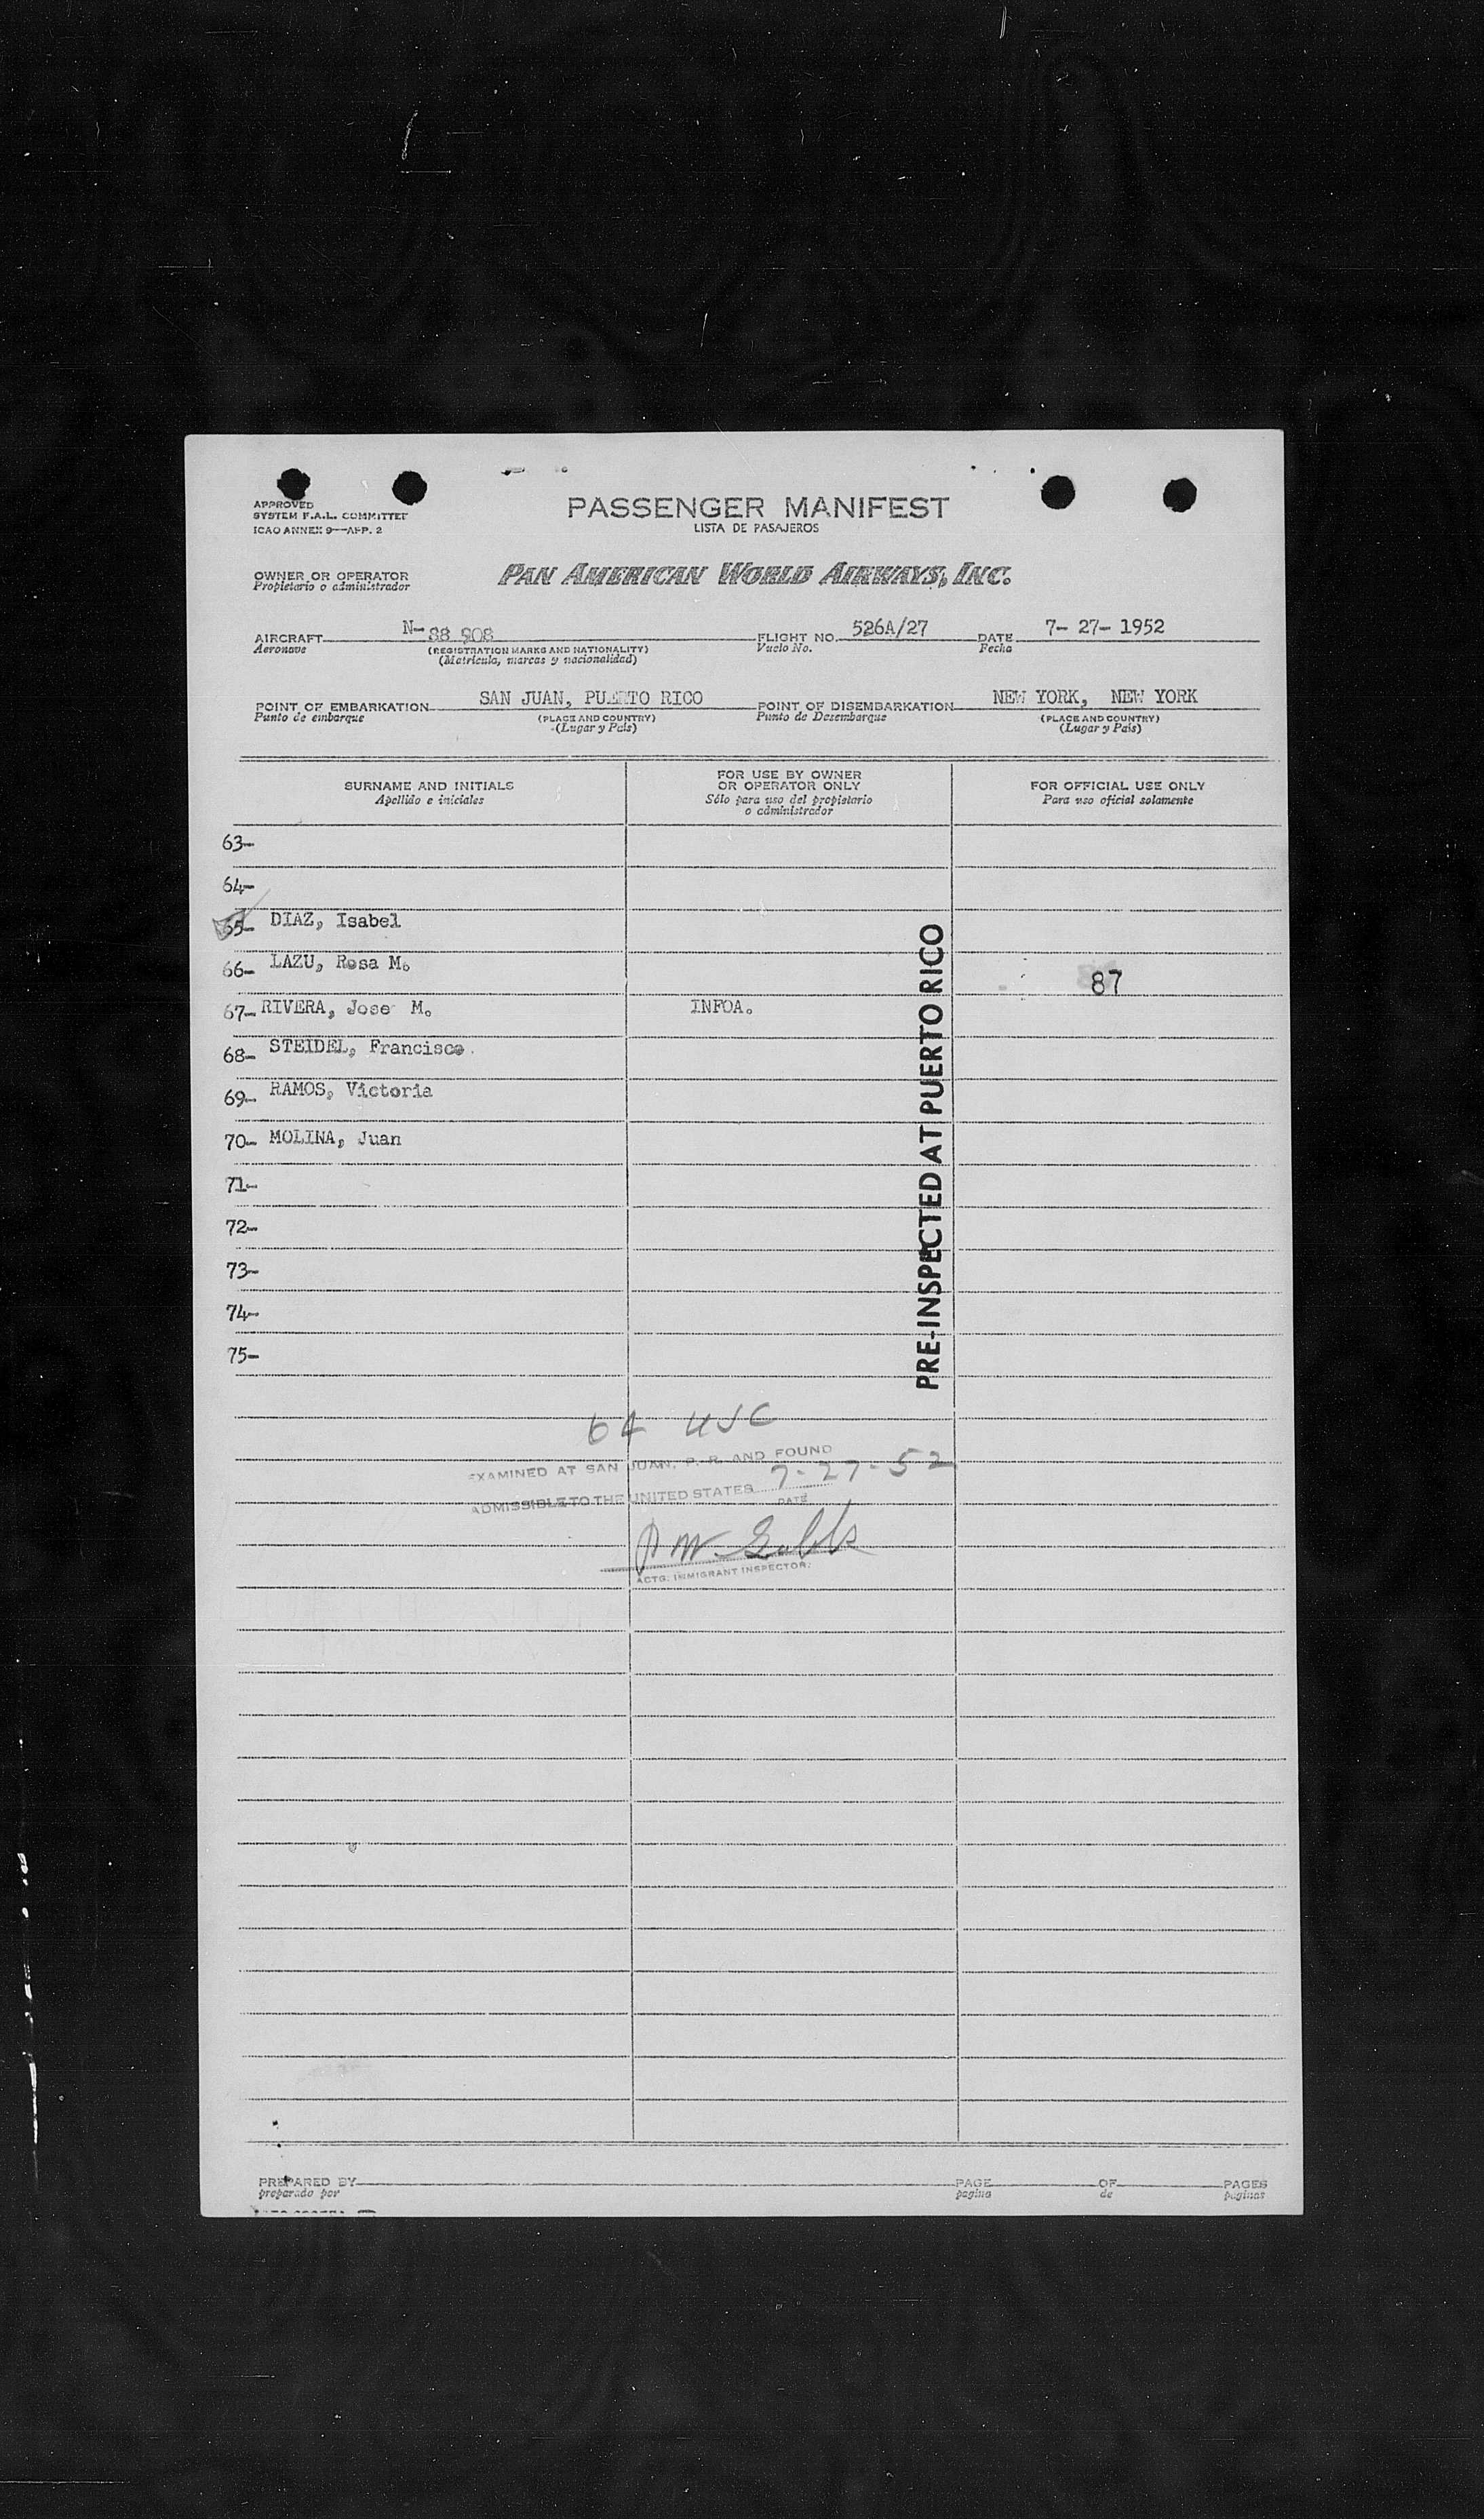 APPROVED
SYSTEM F.A.L. COMMITTEE
ICAO ANNEX 9—APP. 2
PASSENGER MANIFEST
LISTA DE PASAJEROS
OWNER OR OPERATOR
Propietario o administrador
PAN AMERICAN WORLD AIRWAYS, INC.
AIRCRAFT N-88 908 FLIGHT NO. 526A/27 DATE 7- 27- 1952
Aeronave (REGISTRATION MARKS AND NATIONALITY) Vuelo No. Fecha
(Matricula, marcas y nacionalidad)
POINT OF EMBARKATION SAN JUAN, PUERTO RICO POINT OF DISEMBARKATION NEW YORK, NEW YORK
Punto de embarque (PLACE AND COUNTRY) Punto de Desembarque (PLACE AND COUNTRY)
(Lugar y País) (Lugar y País)
SURNAME AND INITIALS
Apellido e iniciales
FOR USE BY OWNER
OR OPERATOR ONLY
Sólo para uso del propietario
o administrador
FOR OFFICIAL USE ONLY
Para uso oficial solamente
63-
64-
65- DIAZ, Isabel
66- LAZU, Rosa M.
87
67- RIVERA, Jose M. INFOA.
68- STEIDEL, Francisco.
69- RAMOS, Victoria
70- MOLINA, Juan
71-
72-
73-
74-
75-
PRE-INSPECTED AT PUERTO RICO
64 USC
EXAMINED AT SAN JUAN, P. R. AND FOUND
ADMISSIBLE TO THE UNITED STATES 7-27-52
DATE
ACTG. IMMIGRANT INSPECTOR.
PREPARED BY PAGE OF PAGES
preparado por pagina de paginas